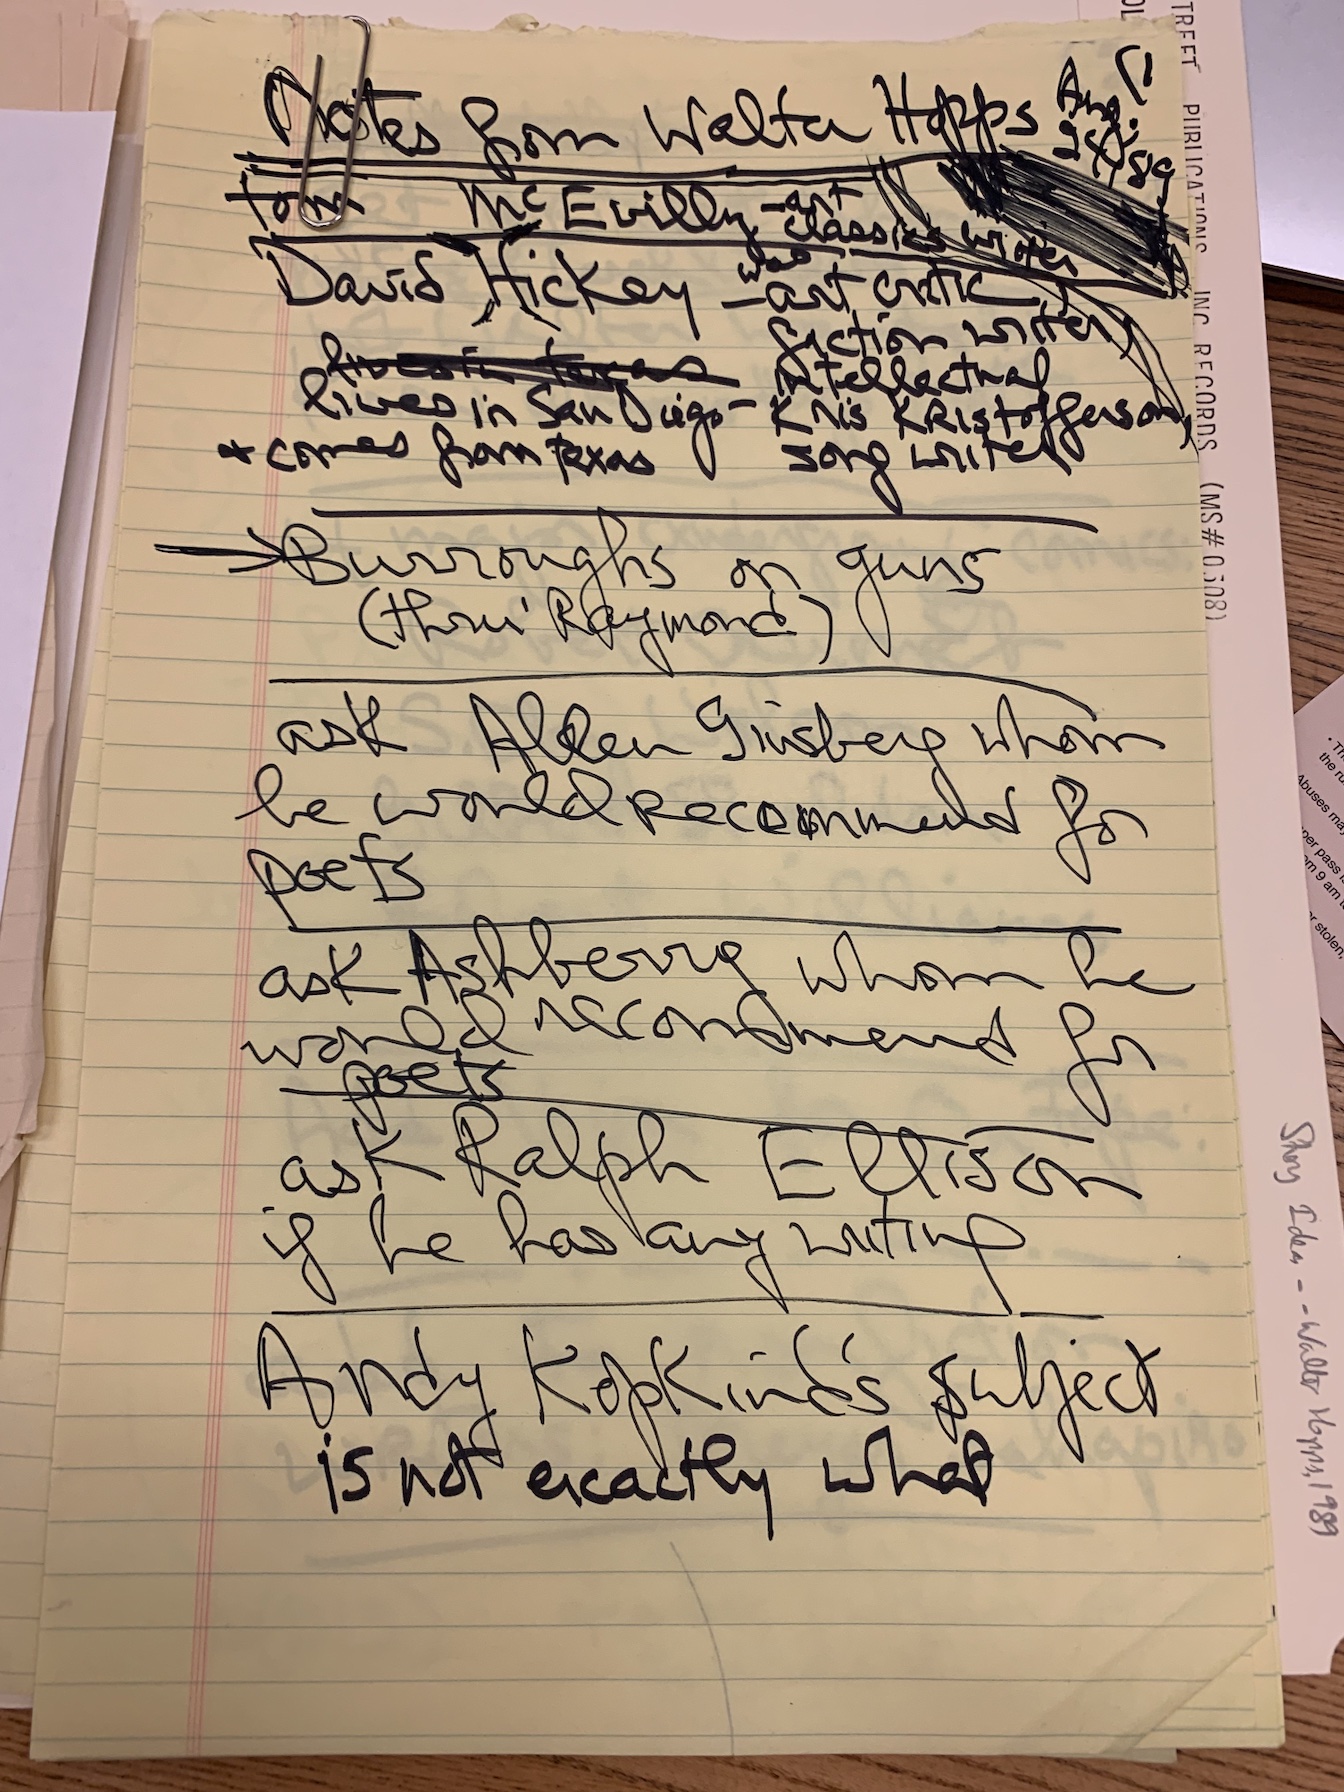 Notes from Walter Hopps
Aug.
24, '89
tom McEvilly - art
classics writer
David Hickey - was
art critic,
fiction writer,
lives in texas intellectual
lives in San Diego - Kris Kristofferson
* comes from texas song writer
→ Burroughs on guns
(thru' Raymond)
ask Allen Ginsberg whom
he would recommend for
poets
ask Ashberry whom he
would recommend for
poets
ask Ralph Ellison
if he has any writing
Andy Kopkind's subject
is not exactly what
TREET PUBLICATIONS INC RECORDS (MS#0308)
Story Idea -- Walter Hopps, 1989
the ru
Abuses ma
per pass i
m 9 am t
r stolen,